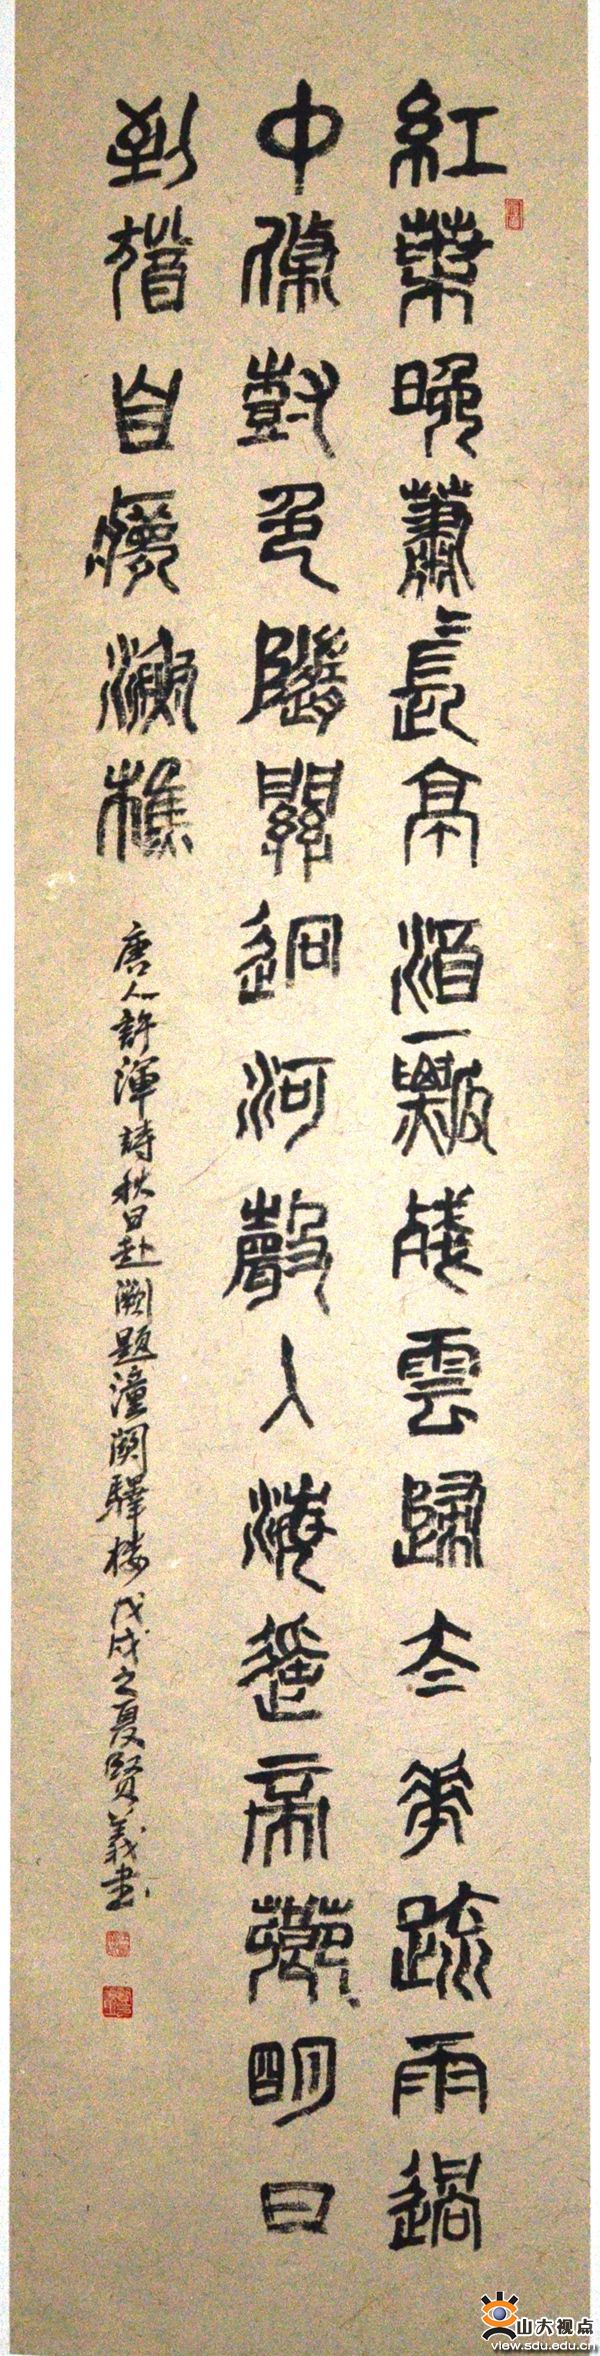 紅葉晚蕭〻長亭酒一瓢殘雲歸太華疏雨過
中條樹色隨關迥河聲入海遙帝鄉明日
到猶自夢漁樵
唐人許渾詩秋日赴闕題潼關驛楼 戊戌之夏賢義書
山大视点
view.sdu.edu.cn